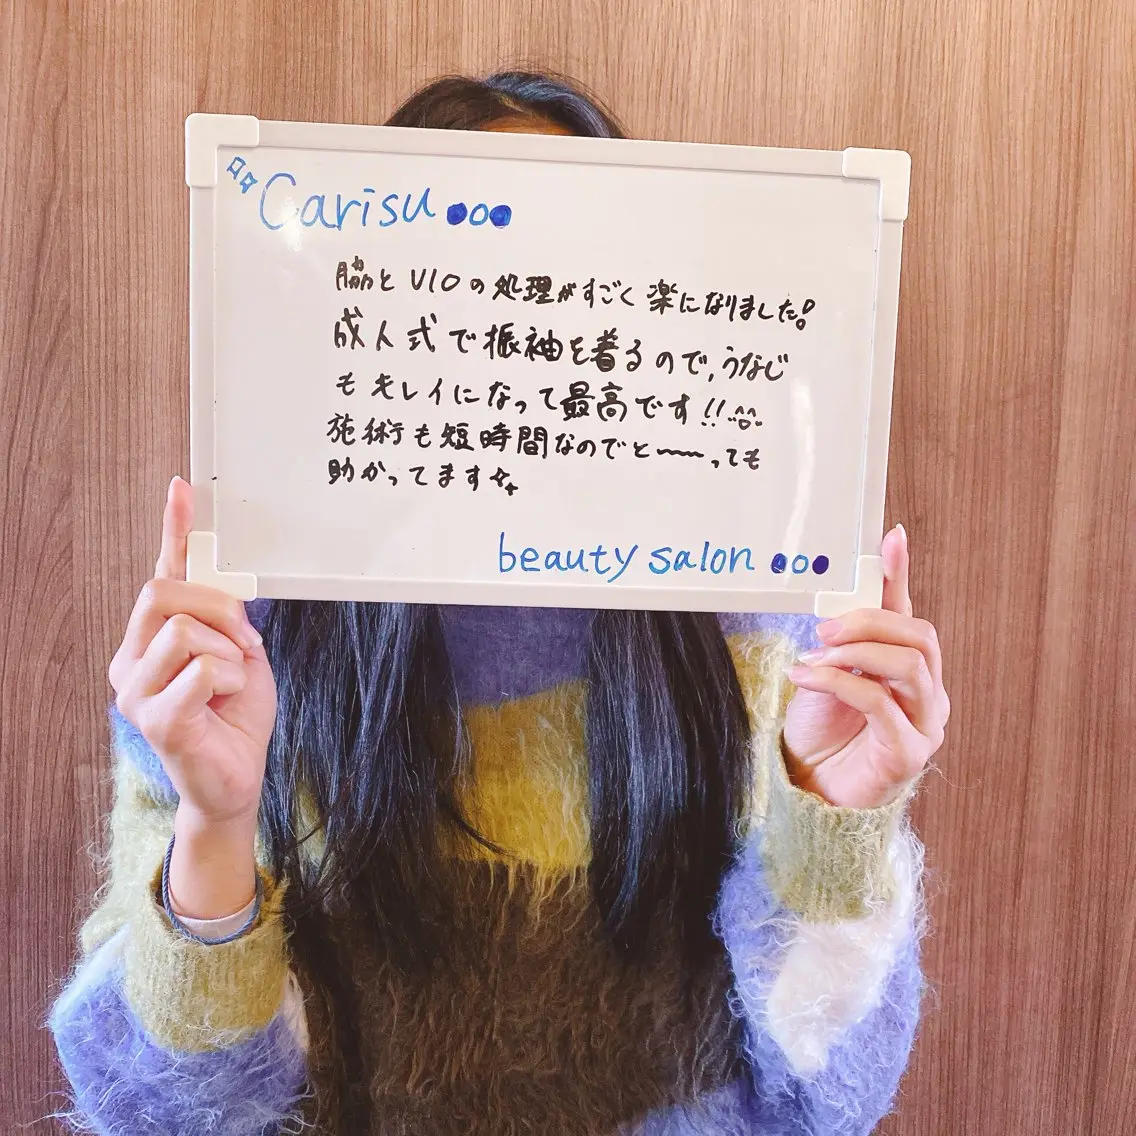 Carisu ●○●
脇とVIOの処理がすごく楽になりました!
成人式で振袖を着るので、うなじ
もキレイになって最高です!!
施術も短時間なのでと〜〜っても
助かってます
beauty salon ●○●